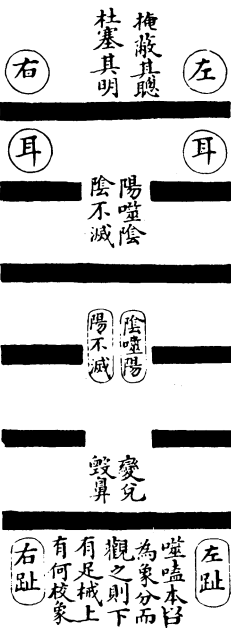 左
掩蔽其聰
杜塞其明
右
耳
耳
陽噬陰
陰不滅
陰噬陽
陽不滅
變兌
毀鼻
左趾
噬嗑本
為象分而
觀之則下
有足械上
有何校象
右趾